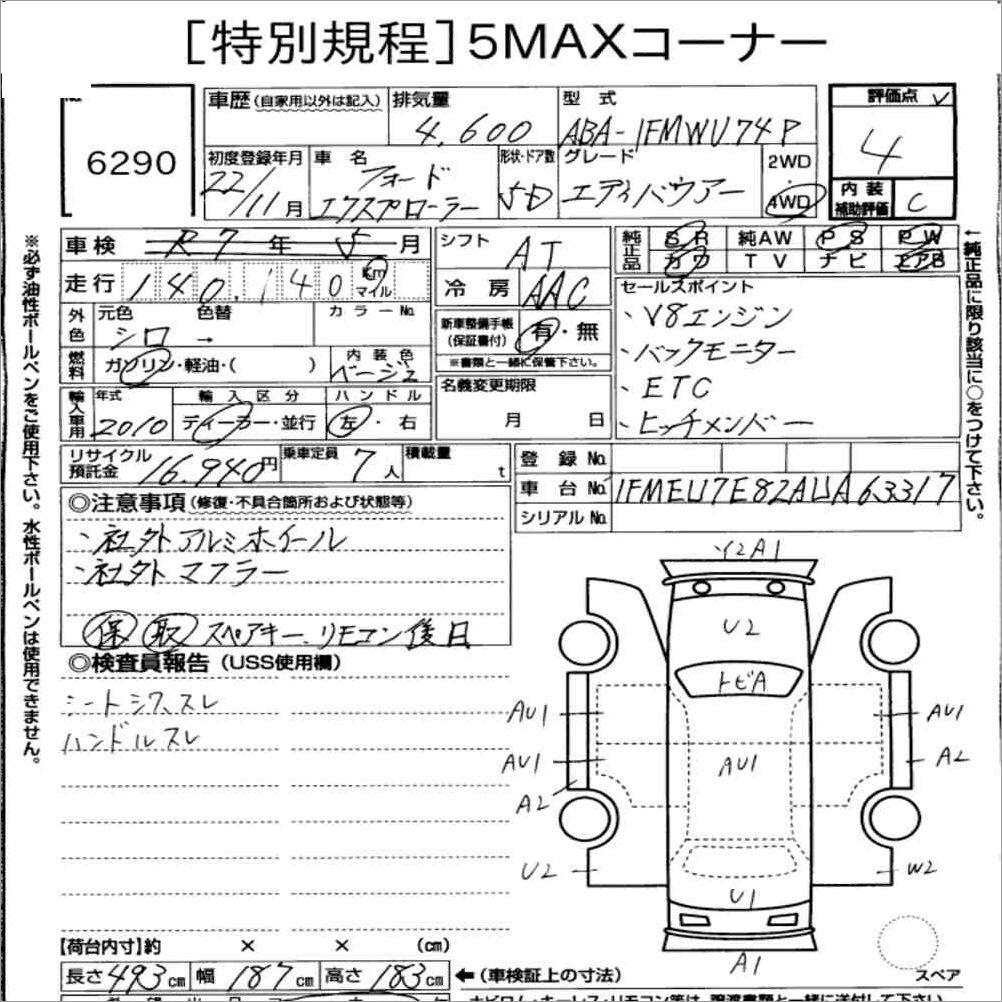 [特別規程]5MAXコーナー
6290
車歴(自家用以外は記入) 排気量 4,600
型式 ABA-1FMWU74P
評価点 4
内装補助評価 C
初度登録年月 22/11月
車名 フォード エクスプローラー
形状・ドア数 5D
グレード エディバウアー
2WD・4WD
車検 R7年5月
走行 140,140 Km マイル
外色 元色 シロ 色替 → カラーNo.
燃料 ガソリン・軽油・( ) 内装色 ベージュ
輸入車用 年式 2010 輸入区分 ディーラー・並行 ハンドル 左・右
シフト AT
冷房 AAC
新車整備手帳(保証書付) 有・無
※書類と一緒に保管下さい。
名義変更期限 月 日
純正品 SR 純AW PS PW
カワ TV ナビ エアB
セールスポイント
・V8エンジン
・バックモニター
・ETC
・ヒッチメンバー
←純正品に限り該当に○をつけて下さい。
※必ず油性ボールペンをご使用下さい。水性ボールペンは使用できません。
リサイクル預託金 16,940円 乗車定員 7人 積載量 t
登録No.
車台No. 1FMEU7E82AUA63317
シリアルNo.
◎注意事項(修復・不具合箇所および状態等)
・社外アルミホイール
・社外マフラー
保 取 スペアキー、リモコン後日
◎検査員報告(USS使用欄)
シートシワ、スレ
ハンドルスレ
Y2A1
U2
トビA
AU1 AU1
AU1 AU1 A2
A2
U2 W2
U1
A1
スペア
【荷台内寸】約 × × (cm)
長さ 493cm 幅 187cm 高さ 183cm ←(車検証上の寸法)